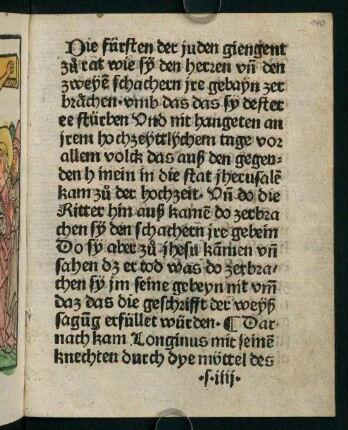 140
Die fürsten der juden giengent
zůrat wie sÿ den herren vñ den
zweyẽ schachern jre gebayn zer
brächen · vmb das das sy dester
ee stürben Vnd nit hangeten an
jrem hochzeyttlychem tage vor
allem volck das auß den gegen⸗
den hinein in die stat jherusalẽ
kam zů der hochzeit · Vñ do die
Ritter hin auß kamẽ do zerbra
chen sÿ den schachern jre gebein
Do sÿ aber zů jhesu kamen vñ
sahen dz er tod was do zerbra⸗
chen sÿ jm seine gebeyn nit vm̃
daz das die geschrifft der weyß
sagũg erfüllet würden · ¶ Dar⸗
nach kam Longinus mit seinẽ
knechten durch dye möttel des
·s·iiij·